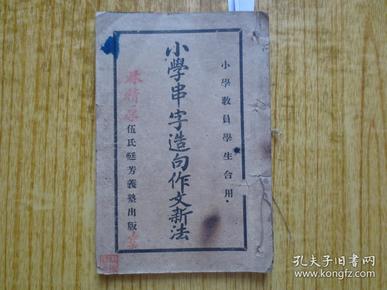 小學教員學生合用·
小學串字造句作文新法
伍氏廷芳義塾出版
孔夫子旧书网